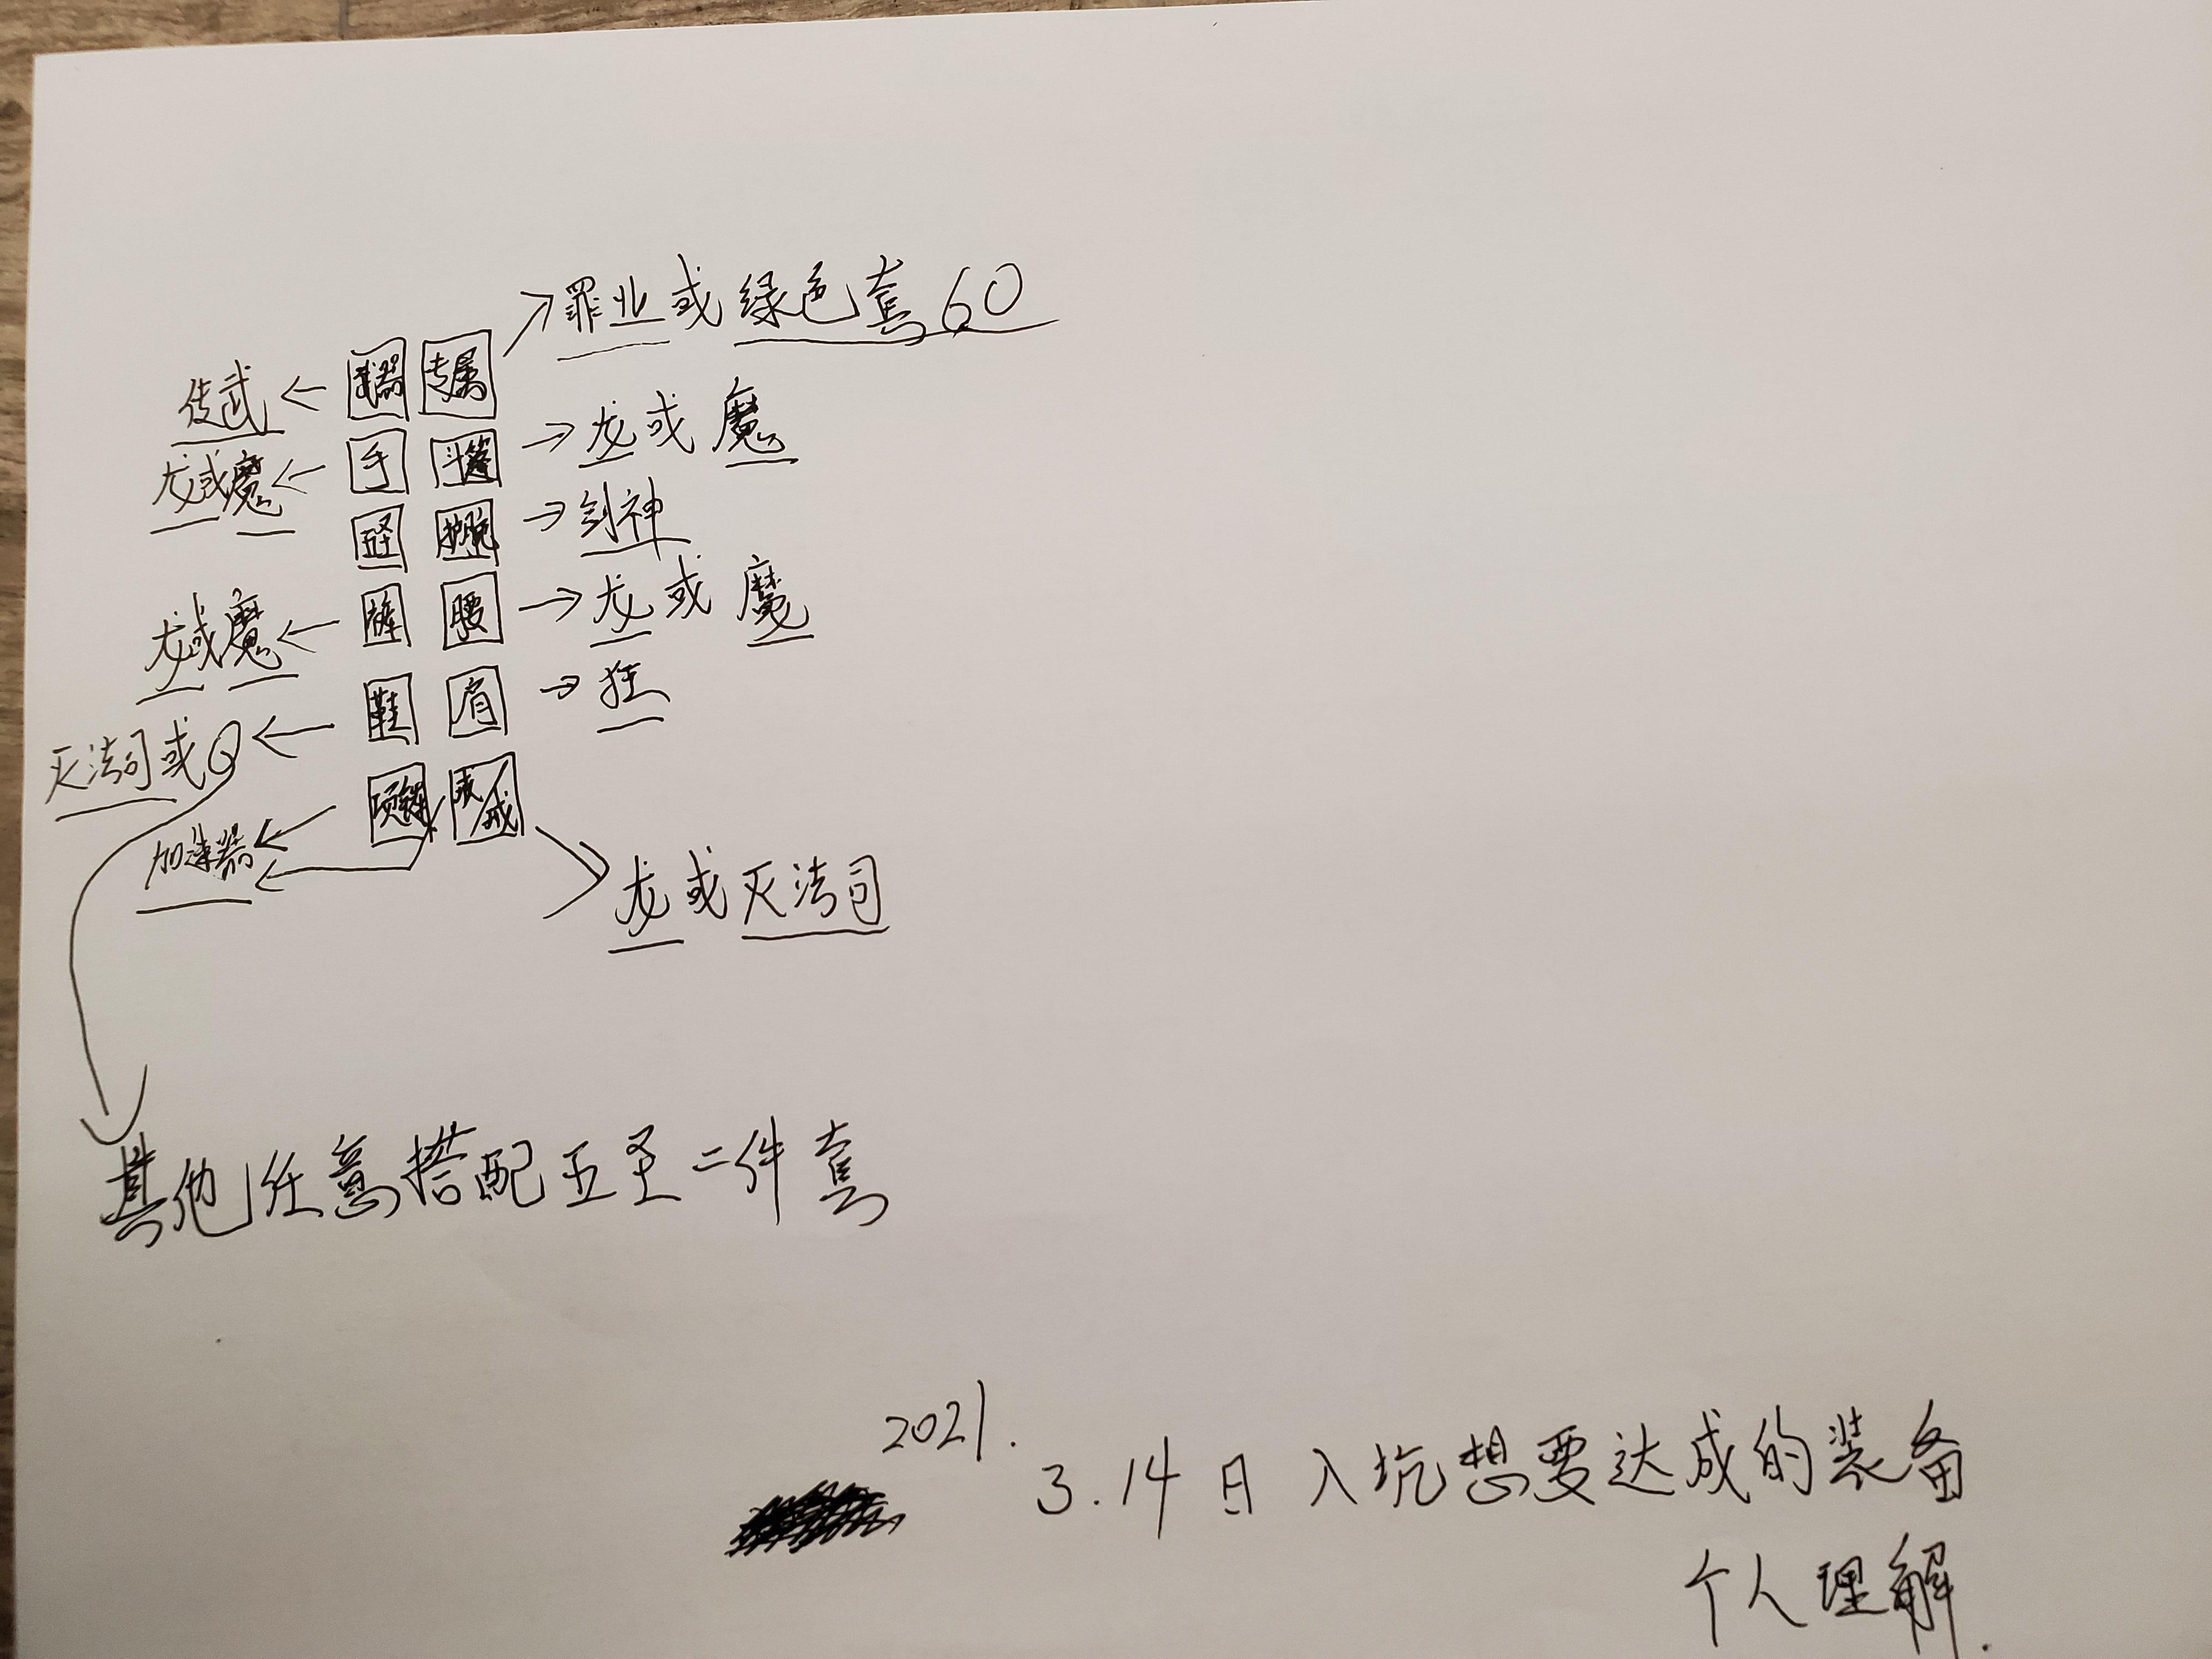 罪业或绿色套60
传武 ← 武器 专属
龙或魔 ← 手 斗篷 → 龙或魔
五圣 护腕 → 剑神
龙或魔 ← 裤 腰 → 龙或魔
灭法司或 ← 鞋 肩 → 狂
加速器 ← 项链 戒/戒
龙或灭法司
其他任意搭配五圣二件套
2021.
3.14日入坑想要达成的装备
个人理解.